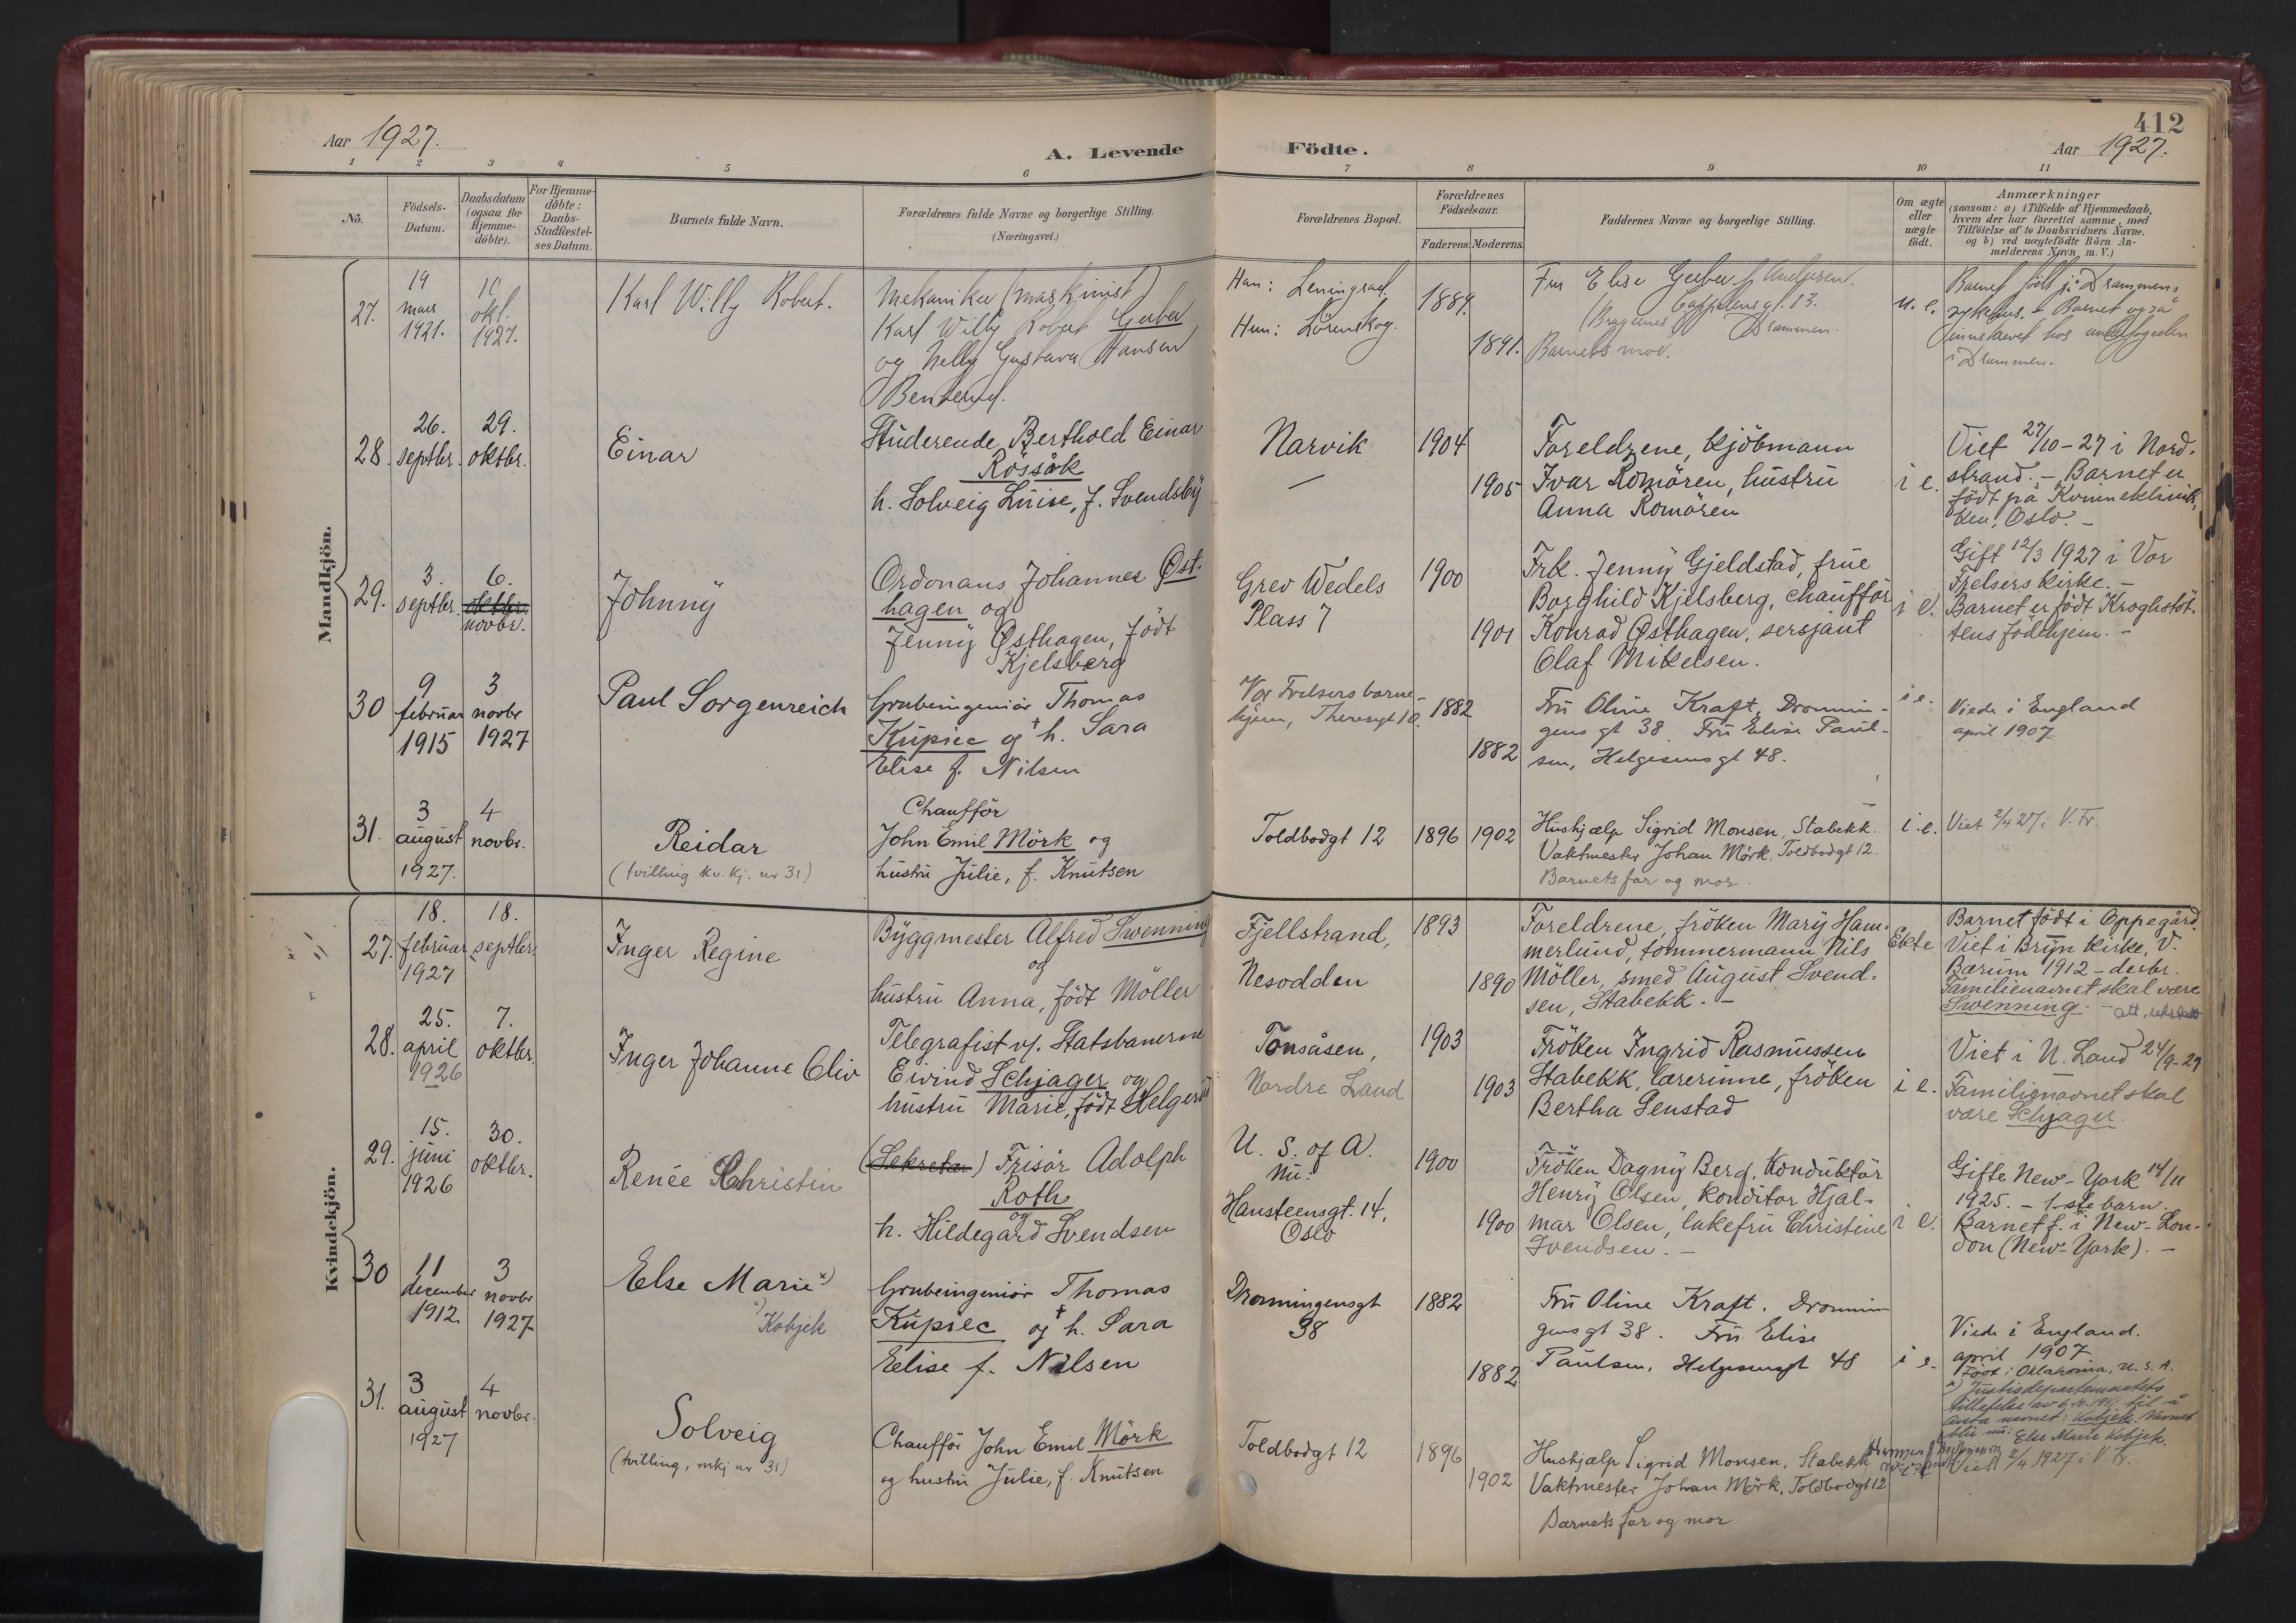 412
Aar 1927.
A. Levende Födte.
Aar 1927.
1 2 3 4 5 6 7 8 9 10 11
No.
Födsels-Datum.
Daabsdatum (ogsaa for Hjemme-döbte).
For Hjemme-döbte: Daabs-Stadfæstel-ses Datum.
Barnets fulde Navn.
Forældrenes fulde Navne og borgerlige Stilling.
(Næringsvei.)
Forældrenes Bopæl.
Forældrenes Födselsaar.
Faderens. Moderens.
Faddernes Navne og borgerlige Stilling.
Om ægte eller uægte födt.
Anmærkninger
(saasom: a) i Tilfælde af Hjemmedaab,
hvem der har forrettet samme, med
Tilföielse af to Daabsvidners Navne.
og b) ved uægtefödte Börn An-
melderens Navn m. V.)
Mandkjön.
27.
19
mars
1921.
okt.
1927.
Karl Willy Robert.
Mekaniker (maskinist)
Karl Willy Robert Gerber
og Nelly Gustava Hansen
Han: Leningrad.
Hun: Lörenskog.
1889.
1891.
Fru Elise Gerber f.
(Bragernes) Cappelensgt. 13.
Drammen.
Barnets mor.
u. e.
Barnet født på Drammens
sykehus. Barnet også
hos
i Drammen.
28.
26.
septbr.
29.
oktbr.
Einar
Studerende Berthold Einar
Rössåk
h. Solveig Luise, f. Svendsby
Narvik
—
1904
1905
Foreldrene, kjöbmann
Ivar Romören, hustru
Anna Romören
i e.
Viet 27/10-27 i Nord-
strand. – Barnet er
födt på Kvinneklinik-
ken, Oslo. –
29.
3.
septbr.
6.
oktbr.
novbr.
Johnny
Ordonans Johannes Øst-
hagen og
Jenny Østhagen, født
Kjelsberg
Grev Wedels
Plass 7
1900
1901
Frk. Jenny Gjeldstad, frue
Borghild Kjelsberg, chauffør
Konrad Østhagen, sersjant
Olaf Mikelsen.
i e.
Gift 12/3 1927 i Vor
Frelsers kirke. –
Barnet er født Kroghstöt-
tens fødehjem. –
30
9
februar
1915
3
novbr
1927
Paul Sorgenreich
Grubeingeniör Thomas
Kupiec og † h. Sara
Elise f. Nilsen
Vor Frelsers barne-
hjem, Theresgt 10.
1882
1882
Fru Oline Kraft, Dronnin-
gens gt 38. Fru Elise Paul-
sen, Helgesens gt 48.
i e.
Viede i England
april 1907
31.
3
august
1927.
4
novbr.
Reidar
(tvilling kv. kj. nr 31)
Chauffør
John Emil Mörk og
hustru Julie, f. Knutsen
Toldbodgt 12
1896 1902
Hushjælp Sigrid Monsen, Stabekk.
Vaktmester Johan Mörk, Toldbodgt 12.
Barnets far og mor.
i. e.
Viet 2/4 27 i V. Fr.
Kvindekjön.
27.
18.
februar
1927
18.
septbr.
Inger Regine
Byggmester Alfred Swenning
og
hustru Anna, födt Möller
Fjellstrand,
Nesodden
1893
1890
Foreldrene, fröken Mary Ham-
merlund, tömmermann Nils
Möller, smed August Svend-
sen, Stabekk. –
Ekte
Barnet födt i Oppegård.
Viet i Bryn kirke, V.
Bærum 1912 – desbr.
Familienavnet skal være
Swenning. –
28.
25.
april
1926
7.
oktbr.
Inger Johanne Oliv
Telegrafist v/. Statsbanerne
Eivind Schjager og
hustru Marie, født Helgerud
Tonsåsen,
Nordre Land
1903
1903
Fröken Ingrid Rasmussen
Stabekk, lærerinne, fröken
Bertha Lenstad
i e.
Viet i N. Land 24/9-27
Familienavnet skal
være Schjager.
29.
15.
juni
1926
30.
oktbr.
Renée Christin
(Sekretær) Frisør Adolph
Roth
og
h. Hildegard Svendsen
U. S. of A.
Nu:
Hansteensgt. 14,
Oslo
1900
1900
Fröken Dagny Berg, Konduktör
Henry Olsen, konditor Hjal-
mar Olsen, enkefru Christine
Svendsen. –
i e.
Gifte New-York 14/11
1925. – 1-ste barn.
Barnet f. i New-Lon-
don (New-York). –
30
11
december
1912.
3
novbr
1927
Else Marie x)
x) Kobjek
Grubeingeniör Thomas
Kupiec og † h. Sara
Elise f. Nilsen
Dronningensgt
38
1882
1882
Fru Oline Kraft. Dronnin
gens gt 38. Fru Elise
Paulsen, Helgesensgt 48
i e.
Viede i England.
april 1907
Født i Oklahoma, U. S. A.
x) Justisdepartementets
tillatelse av til å
anta navnet: Kobjek. Navnet
blir nu: Else Marie Kobjek.
31.
3
august
1927
4
novbr.
Solveig
(tvilling, mkj nr 31)
Chauffør John Emil Mörk
og hustru Julie, f. Knutsen
Toldbodgt 12
1896
1902
Hushjælp Sigrid Monsen, Stabekk
Vaktmester Johan Mörk, Toldbodgt 12
Barnets far og mor
Viet 2/4 1927 i V. Fr.